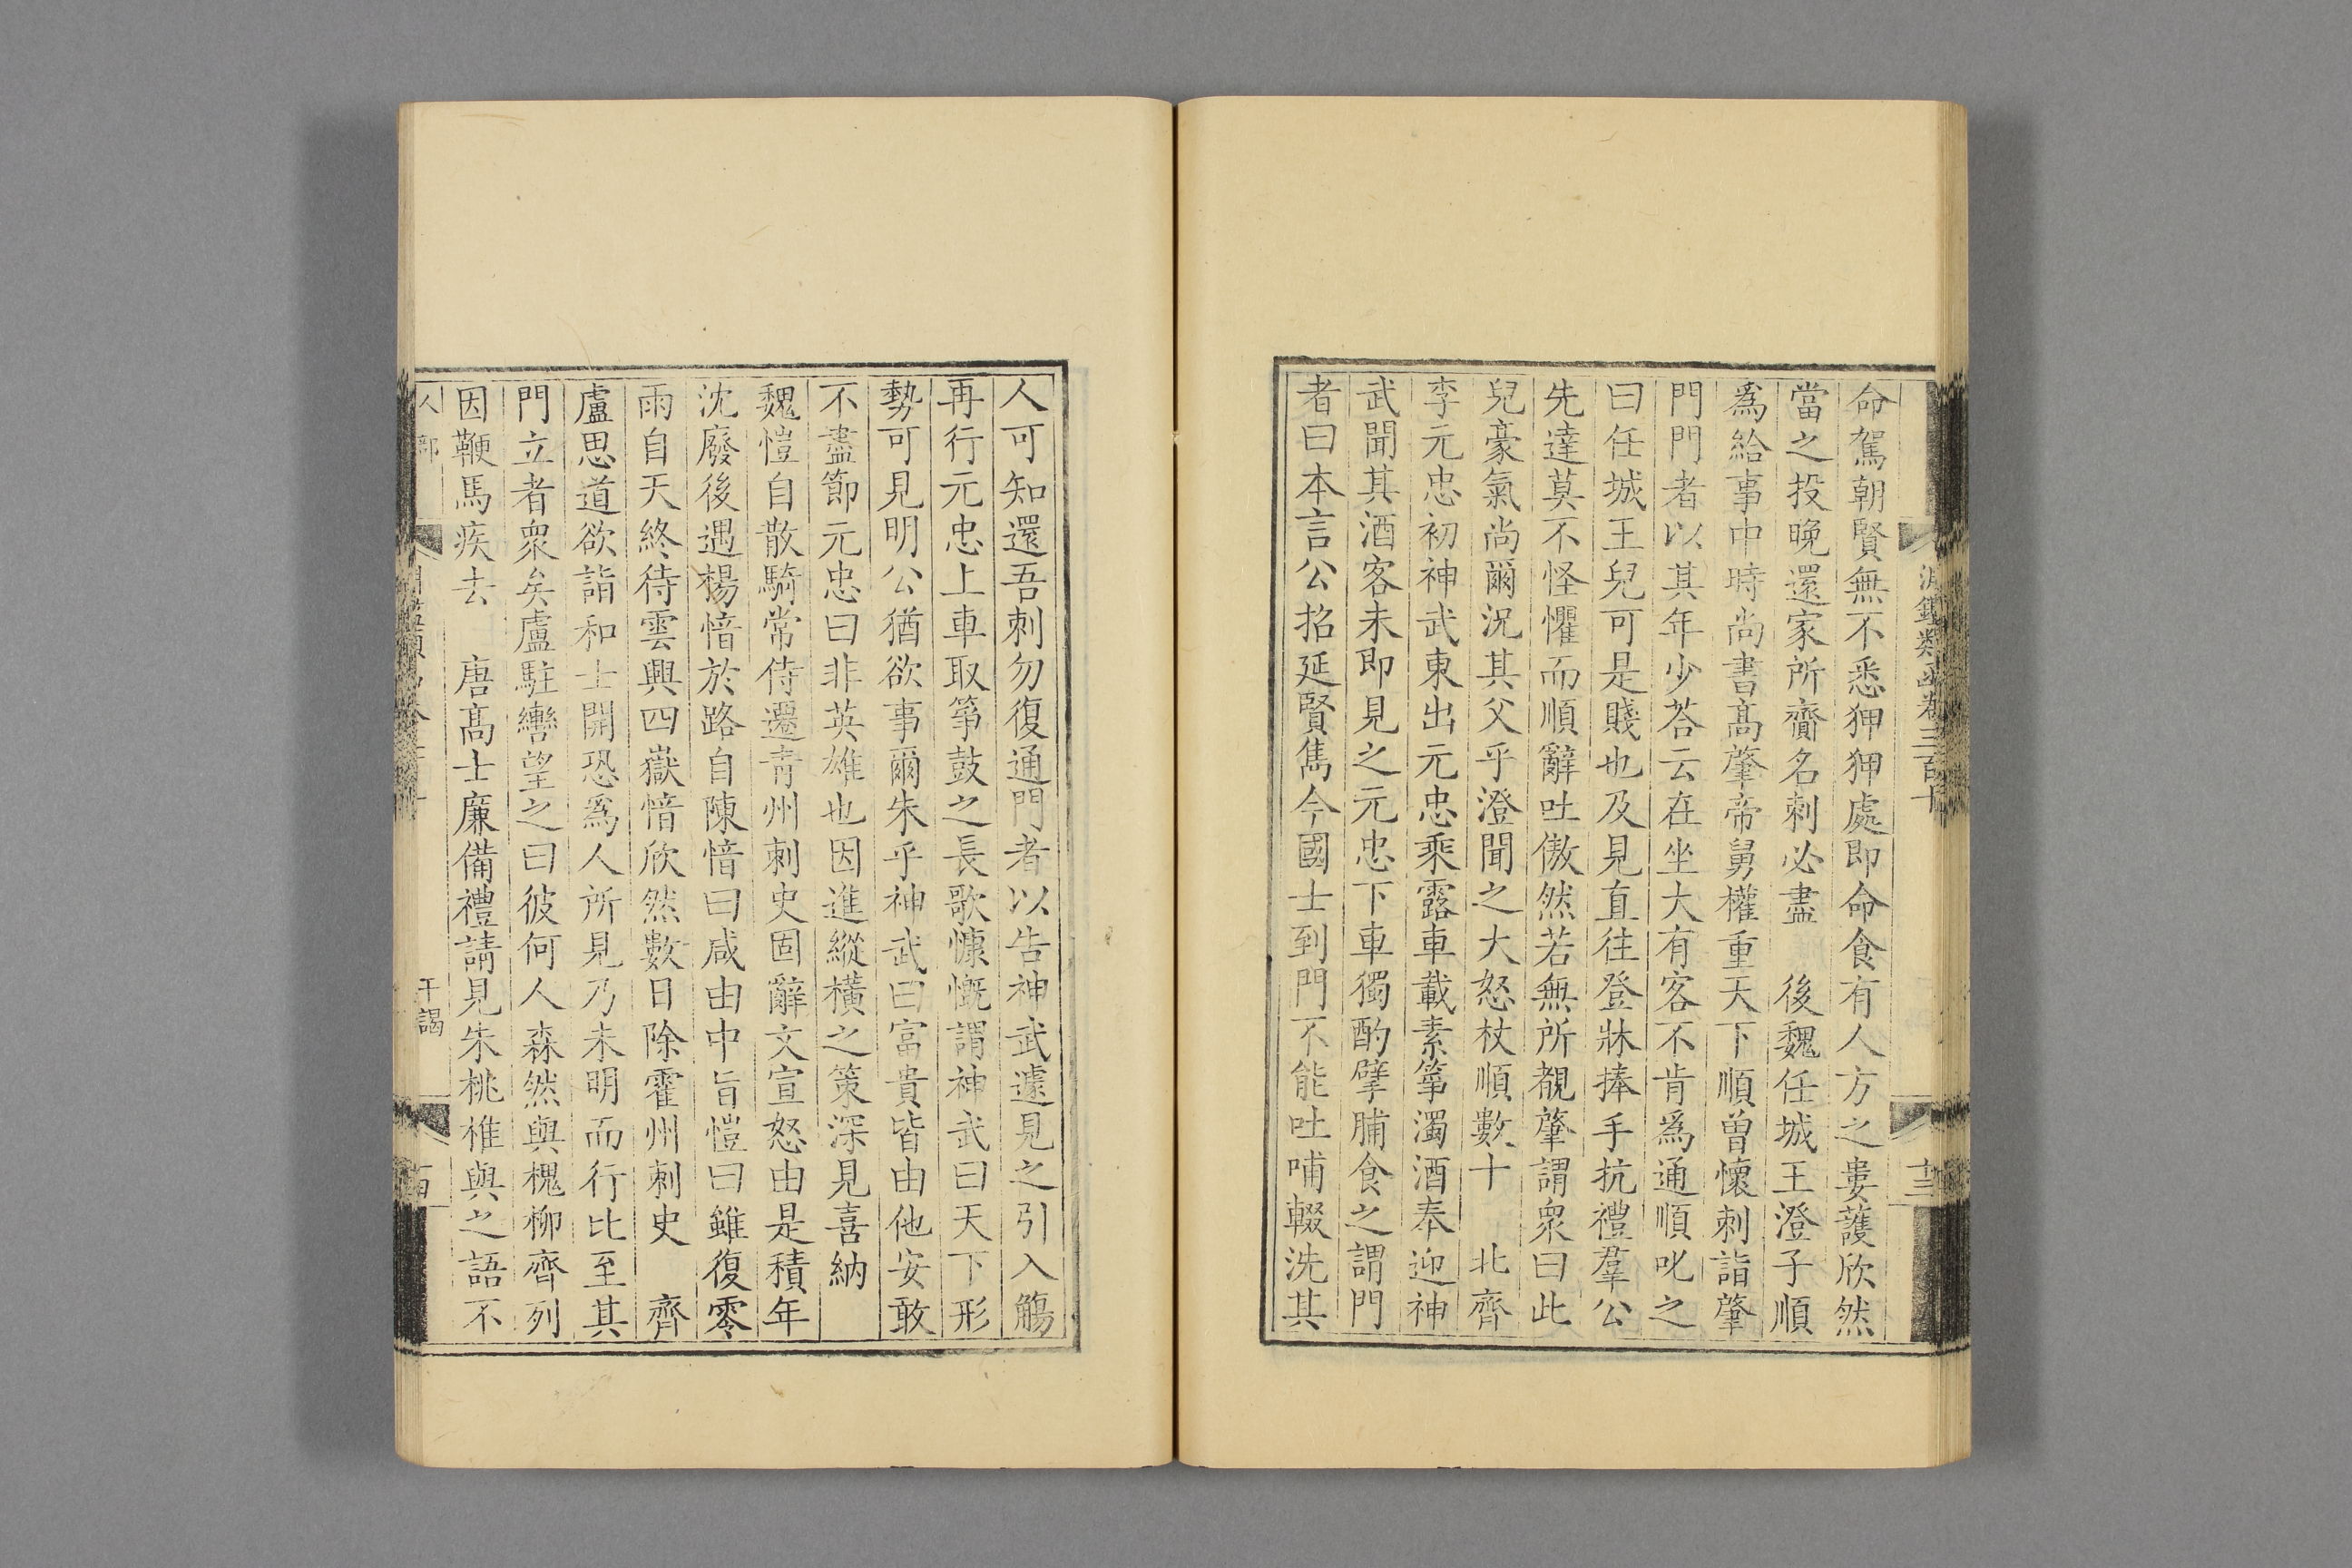 淵鑑類函卷三百十
十三
命駕朝賢無不悉狎狎處即命食有人方之婁護欣然
當之投晚還家所齎名刺必盡　後魏任城王澄子順
爲給事中時尚書髙肇帝舅權重天下順曽懷刺詣肇
門門者以其年少荅云在坐大有客不肯爲通順叱之
曰任城王兒可是賤也及見直往登牀捧手抗禮羣公
先達莫不怪懼而順辭吐傲然若無所覩肇謂衆曰此
兒豪氣尚爾況其父乎澄聞之大怒杖順數十　北齊
李元忠初神武東出元忠乘露車載素筝濁酒奉迎神
武聞其酒客未即見之元忠下車獨酌擘脯食之謂門
者曰本言公招延賢雋今國士到門不能吐哺輟洗其
人可知還吾刺勿復通門者以告神武遽見之引入觴
再行元忠上車取筝鼓之長歌慷慨謂神武曰天下形
勢可見明公猶欲事爾朱乎神武曰富貴皆由他安敢
不盡節元忠曰非英雄也因進縱橫之策深見喜納
魏愷自散騎常侍遷青州刺史固辭文宣怒由是積年
沈廢後遇楊愔於路自陳愔曰咸由中旨愷曰雖復零
雨自天終待雲興四嶽愔欣然數日除霍州刺史　齊
盧思道欲詣和士開恐爲人所見乃未明而行比至其
門立者衆矣盧駐轡望之曰彼何人森然與槐柳齊列
因鞭馬疾去　唐髙士廉備禮請見朱桃椎與之語不
人部
干謁